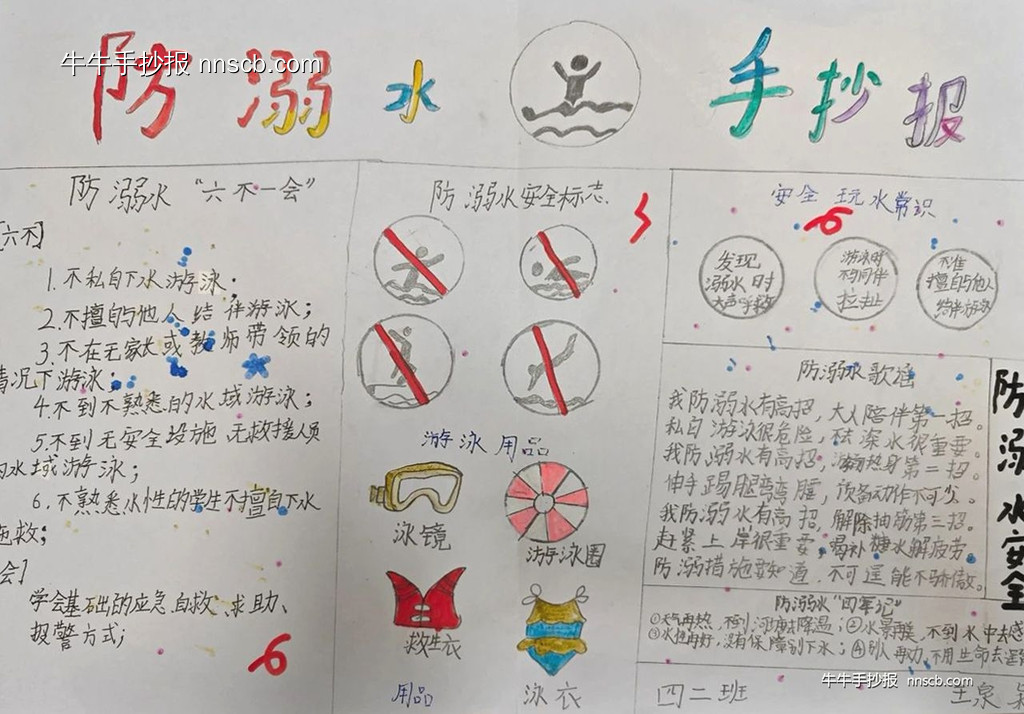 防溺水
手抄报
牛牛手抄报 nnscb.com
防溺水“六不一会”
六不]
1.不私自下水游泳；
2.不擅自与他人结伴游泳；
3.不在无家长或教师带领的
情况下游泳；
4.不到不熟悉的水域游泳；
5.不到无安全设施、无救援人员
的水域游泳；
6.不熟悉水性的学生不擅自下水
施救；
会]
学会基础的应急、自救、求助、
报警方式；
6
防溺水安全标志
3
游泳用品
泳镜
游泳圈
救生衣
泳衣
用品
安全玩水常识
6
发现
溺水时
大声呼救
游泳时
不同伴
拉扯
不准
擅自与他人
结伴游泳
防溺水歌谣
我防溺水有高招，大人陪伴第一招。
私自游泳很危险，祛深水很重要。
我防溺水有高招，游前热身第二招。
伸手踢腿弯弯腰，预备动作不可少。
我防溺水有高招，解除抽筋第三招。
赶紧上岸很重要，喝补糖水解疲劳。
防溺措施要知道，不可逞能不骄傲。
防溺水安全
防溺水“四牢记”
①天气再热，不到
降温；②水景再美，不到水中去感
③水性再好，没有保障别下水；④别人再劝，不用生命去逞
牛牛手抄报 nnscb.com
四二班
王泉